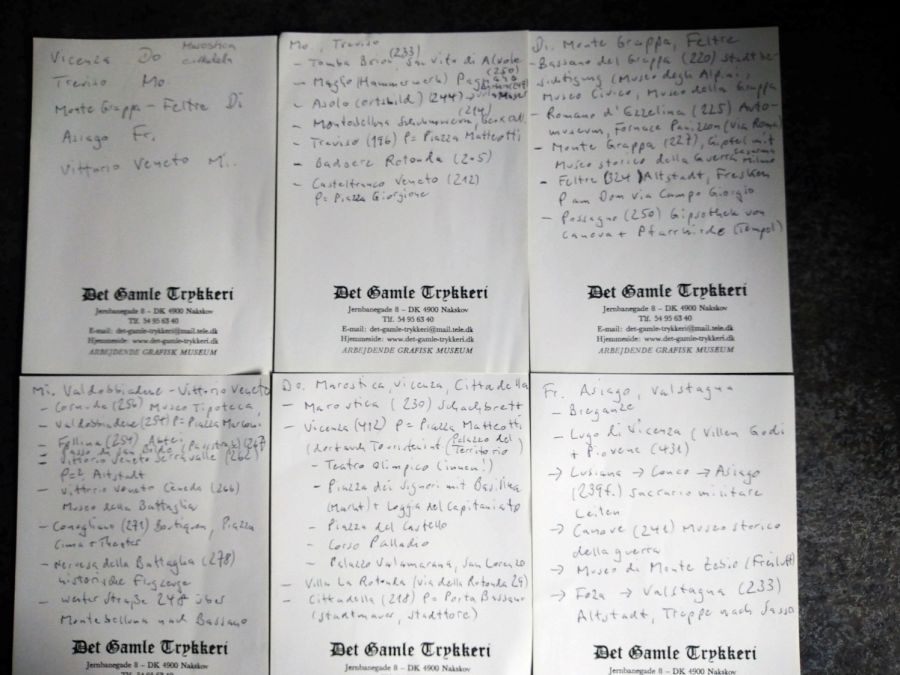 Vicenza Do Marostica
Cittadela
Treviso Mo.
Monte Grappa - Feltre Di
Asiago Fr.
Vittorio Veneto Mi.
Det Gamle Trykkeri
Jernbanegade 8 – DK 4900 Nakskov
Tlf. 54 95 63 40
E-mail: det-gamle-trykkeri@mail.tele.dk
Hjemmeside: www.det-gamle-trykkeri.dk
ARBEJDENDE GRAFISK MUSEUM
Mo. Treviso
- Tomba Brion (233) San Vito di Altivole
- Maglio (Hammerwerk) Pagnano (250)
- Asolo (Ortsbild) (244) →
- Montebelluna Schuhmuseum, (214)
- Treviso (196) P= Piazza Matteotti
- Badoere Rotonda (205)
- Castelfranco Veneto (212)
P= Piazza Giorgione
Det Gamle Trykkeri
Jernbanegade 8 – DK 4900 Nakskov
Tlf. 54 95 63 40
E-mail: det-gamle-trykkeri@mail.tele.dk
Hjemmeside: www.det-gamle-trykkeri.dk
ARBEJDENDE GRAFISK MUSEUM
Di. Monte Grappa, Feltre
- Bassano del Grappa (220) Stadtbe-
sichtigung (Museo degli Alpini,
Museo Civico, Museo della Grappa
- Romano d'Ezzelina (225) Auto-
museum, Fornace Panizzon (via Roma)
- Monte Grappa (227), Gipfel mit
Museo storico della Guerra
- Feltre (324) Altstadt, Fresken
P am Dom via Campo Giorgio
- Possagno (250) Gipsothek von
Canova + Pfarrkirche (Tempel)
Det Gamle Trykkeri
Jernbanegade 8 – DK 4900 Nakskov
Tlf. 54 95 63 40
E-mail: det-gamle-trykkeri@mail.tele.dk
Hjemmeside: www.det-gamle-trykkeri.dk
ARBEJDENDE GRAFISK MUSEUM
Mi. Valdobbiadene - Vittorio Veneto
- Cornuda (256) Museo Tipoteca,
- Valdobbiadene (254) P= Piazza Marconi
- Follina (259) Abtei
- Passo di San Boldo (Passstraße) (267
- Vittorio Veneto Serravalle (262)
P= Altstadt
- Vittorio Veneto Ceneda (266)
Museo della Battaglia
- Conegliano (271) Boutiquen, Piazza
Cima + Theater
- Nervesa della Battaglia (278)
historische Flugzeuge
- weiter Straße 248 über
Montebelluna nach Bassano
Det Gamle Trykkeri
Jernbanegade 8 – DK 4900 Nakskov
Tlf. 54 95 63 40
Do. Marostica, Vicenza, Cittadella
- Marostica (230) Schachbrett
- Vicenza (412) P= Piazza Matteotti
(dort auch Touristinf. (Palazzo del
Territorio)
- Teatro Olimpico (innen!)
- Piazza dei Signori mit Basilika
(Markt) + Loggia del Capitaniato
- Piazza del Castello
- Corso Palladio
- Palazzo Valamarana, San Lorenzo
- Villa La Rotonda (via della Rotonda 29)
- Cittadella (218) P= Porta Bassano
(Stadtmauer, Stadttore)
Det Gamle Trykkeri
Jernbanegade 8 – DK 4900 Nakskov
Fr. Asiago, Valstagna
- Breganze
- Lugo di Vicenza (Villen Godi
+ Piovene (431)
→ Lusiana → Conco → Asiago
(239f.) Sacrario militare
Leiten
→ Canove (242) Museo storico
della guerra
→ Museo di Monte Zebio (Freiluft)
→ Foza → Valstagna (233)
Altstadt, Treppe nach Sasso
Det Gamle Trykkeri
Jernbanegade 8 – DK 4900 Nakskov